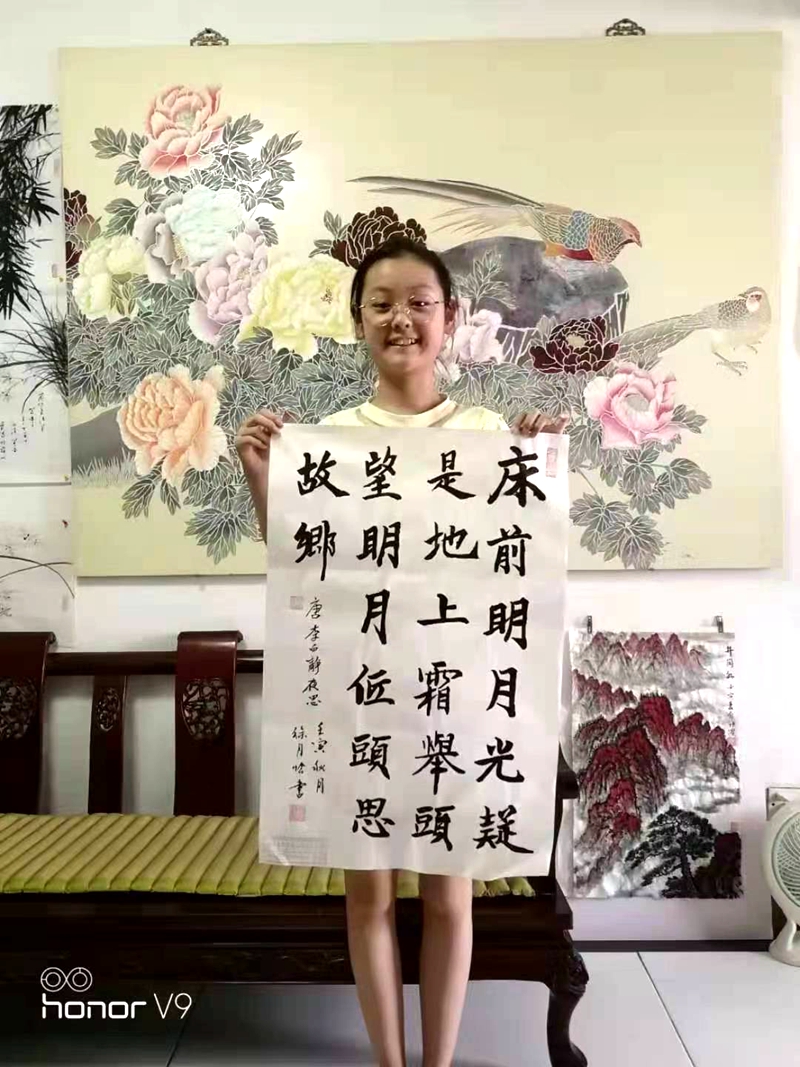 床前明月光疑
是地上霜舉頭
望明月低頭思
故鄉
唐李白静夜思
壬寅秋月
徐月書
honor V9